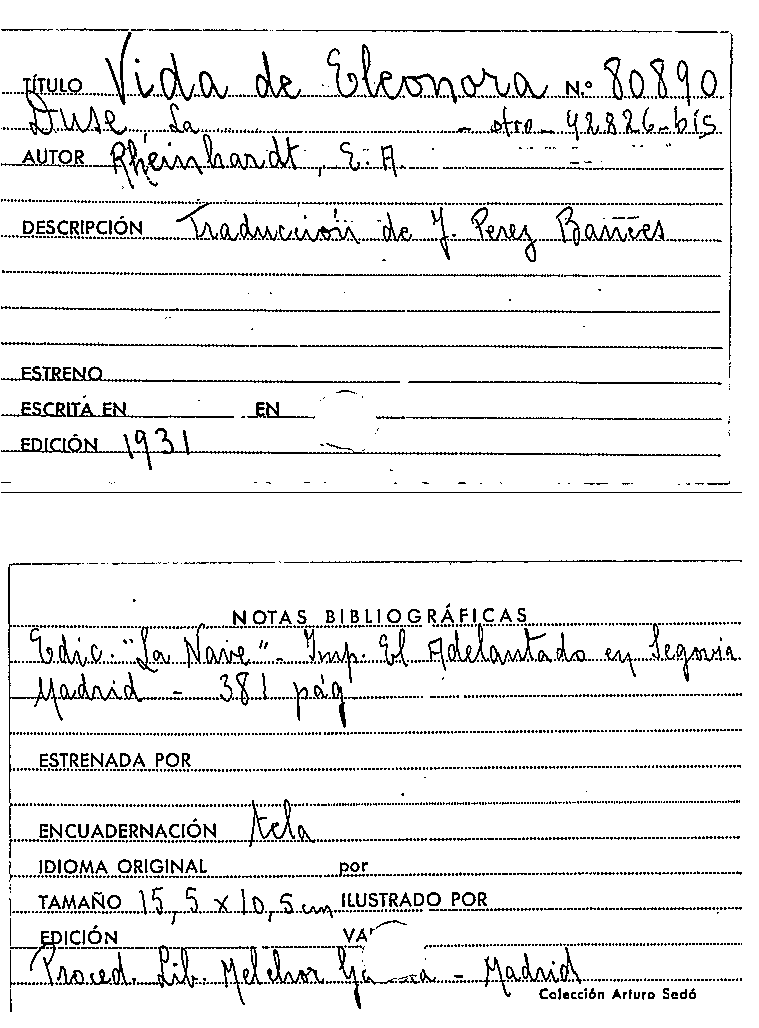 TÍTULO Vida de Eleonora N.º 80890
Duse, La - otro - 42826-bis
AUTOR Rheinhardt, E. A.
DESCRIPCIÓN Traducción de J. Perez Bances
ESTRENO
ESCRITA EN EN
EDICIÓN 1931
NOTAS BIBLIOGRÁFICAS
Edic. "La Nave" - Imp. El Adelantado en Segovia
Madrid - 381 pág
ESTRENADA POR
ENCUADERNACIÓN tela
IDIOMA ORIGINAL por
TAMAÑO 15,5 x 10,5 cm ILUSTRADO POR
EDICIÓN
Proced. Lib. Melchor - Madrid
Colección Arturo Sedó